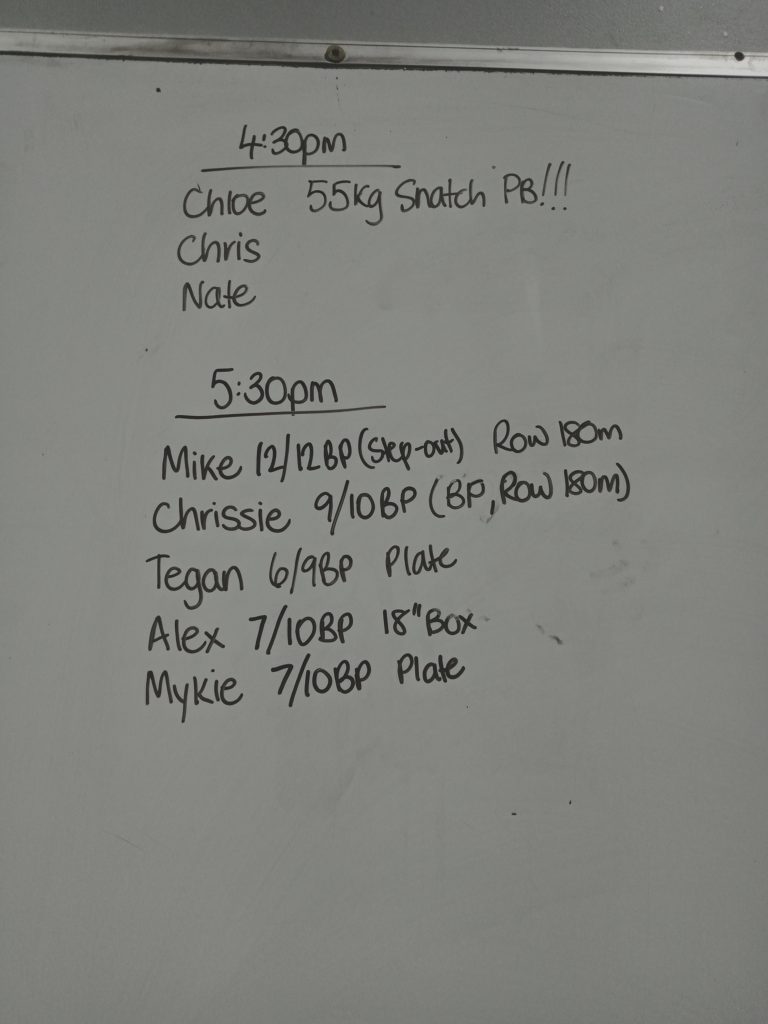 4:30pm
Chloe 55kg Snatch PB!!!
Chris
Nate
5:30pm
Mike 12/12BP (Step-out) Row 180m
Chrissie 9/10BP (BP, Row 180m)
Tegan 6/9BP Plate
Alex 7/10BP 18" Box
Mykie 7/10BP Plate